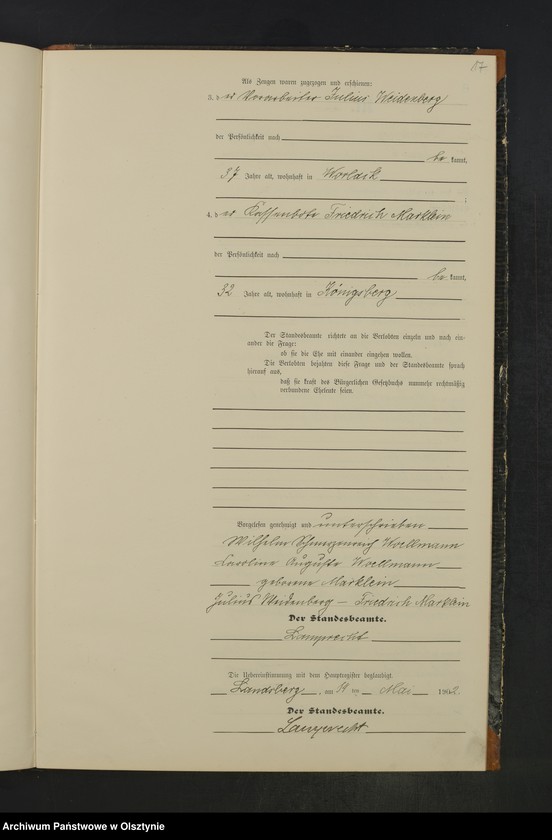 Als Zeugen waren zugezogen und erschienen:
3. der Vorarbeiter Julius Weidenberg
der Persönlichkeit nach
be kannt,
37 Jahre alt, wohnhaft in Worlack
;
4. der Kassenbote Friedrich Marklein
der Persönlichkeit nach
be kannt,
32 Jahre alt, wohnhaft in Königsberg
Der Standesbeamte richtete an die Verlobten einzeln und nach ein-
ander die Frage:
ob sie die Ehe mit einander eingehen wollen.
Die Verlobten bejahten diese Frage und der Standesbeamte sprach
hierauf aus,
daß sie kraft des Bürgerlichen Gesetzbuchs nunmehr rechtmäßig
verbundene Eheleute seien.
Vorgelesen, genehmigt und unterschrieben
Wilhelm Woellmann
Karoline Auguste Woellmann
geborene Marklein
Julius Weidenberg – Friedrich Marklein
Der Standesbeamte.
Lamprecht
Die Uebereinstimmung mit dem Hauptregister beglaubigt.
Landsberg, am ten Mai 1902
Der Standesbeamte.
Lamprecht
Archiwum Państwowe w Olsztynie